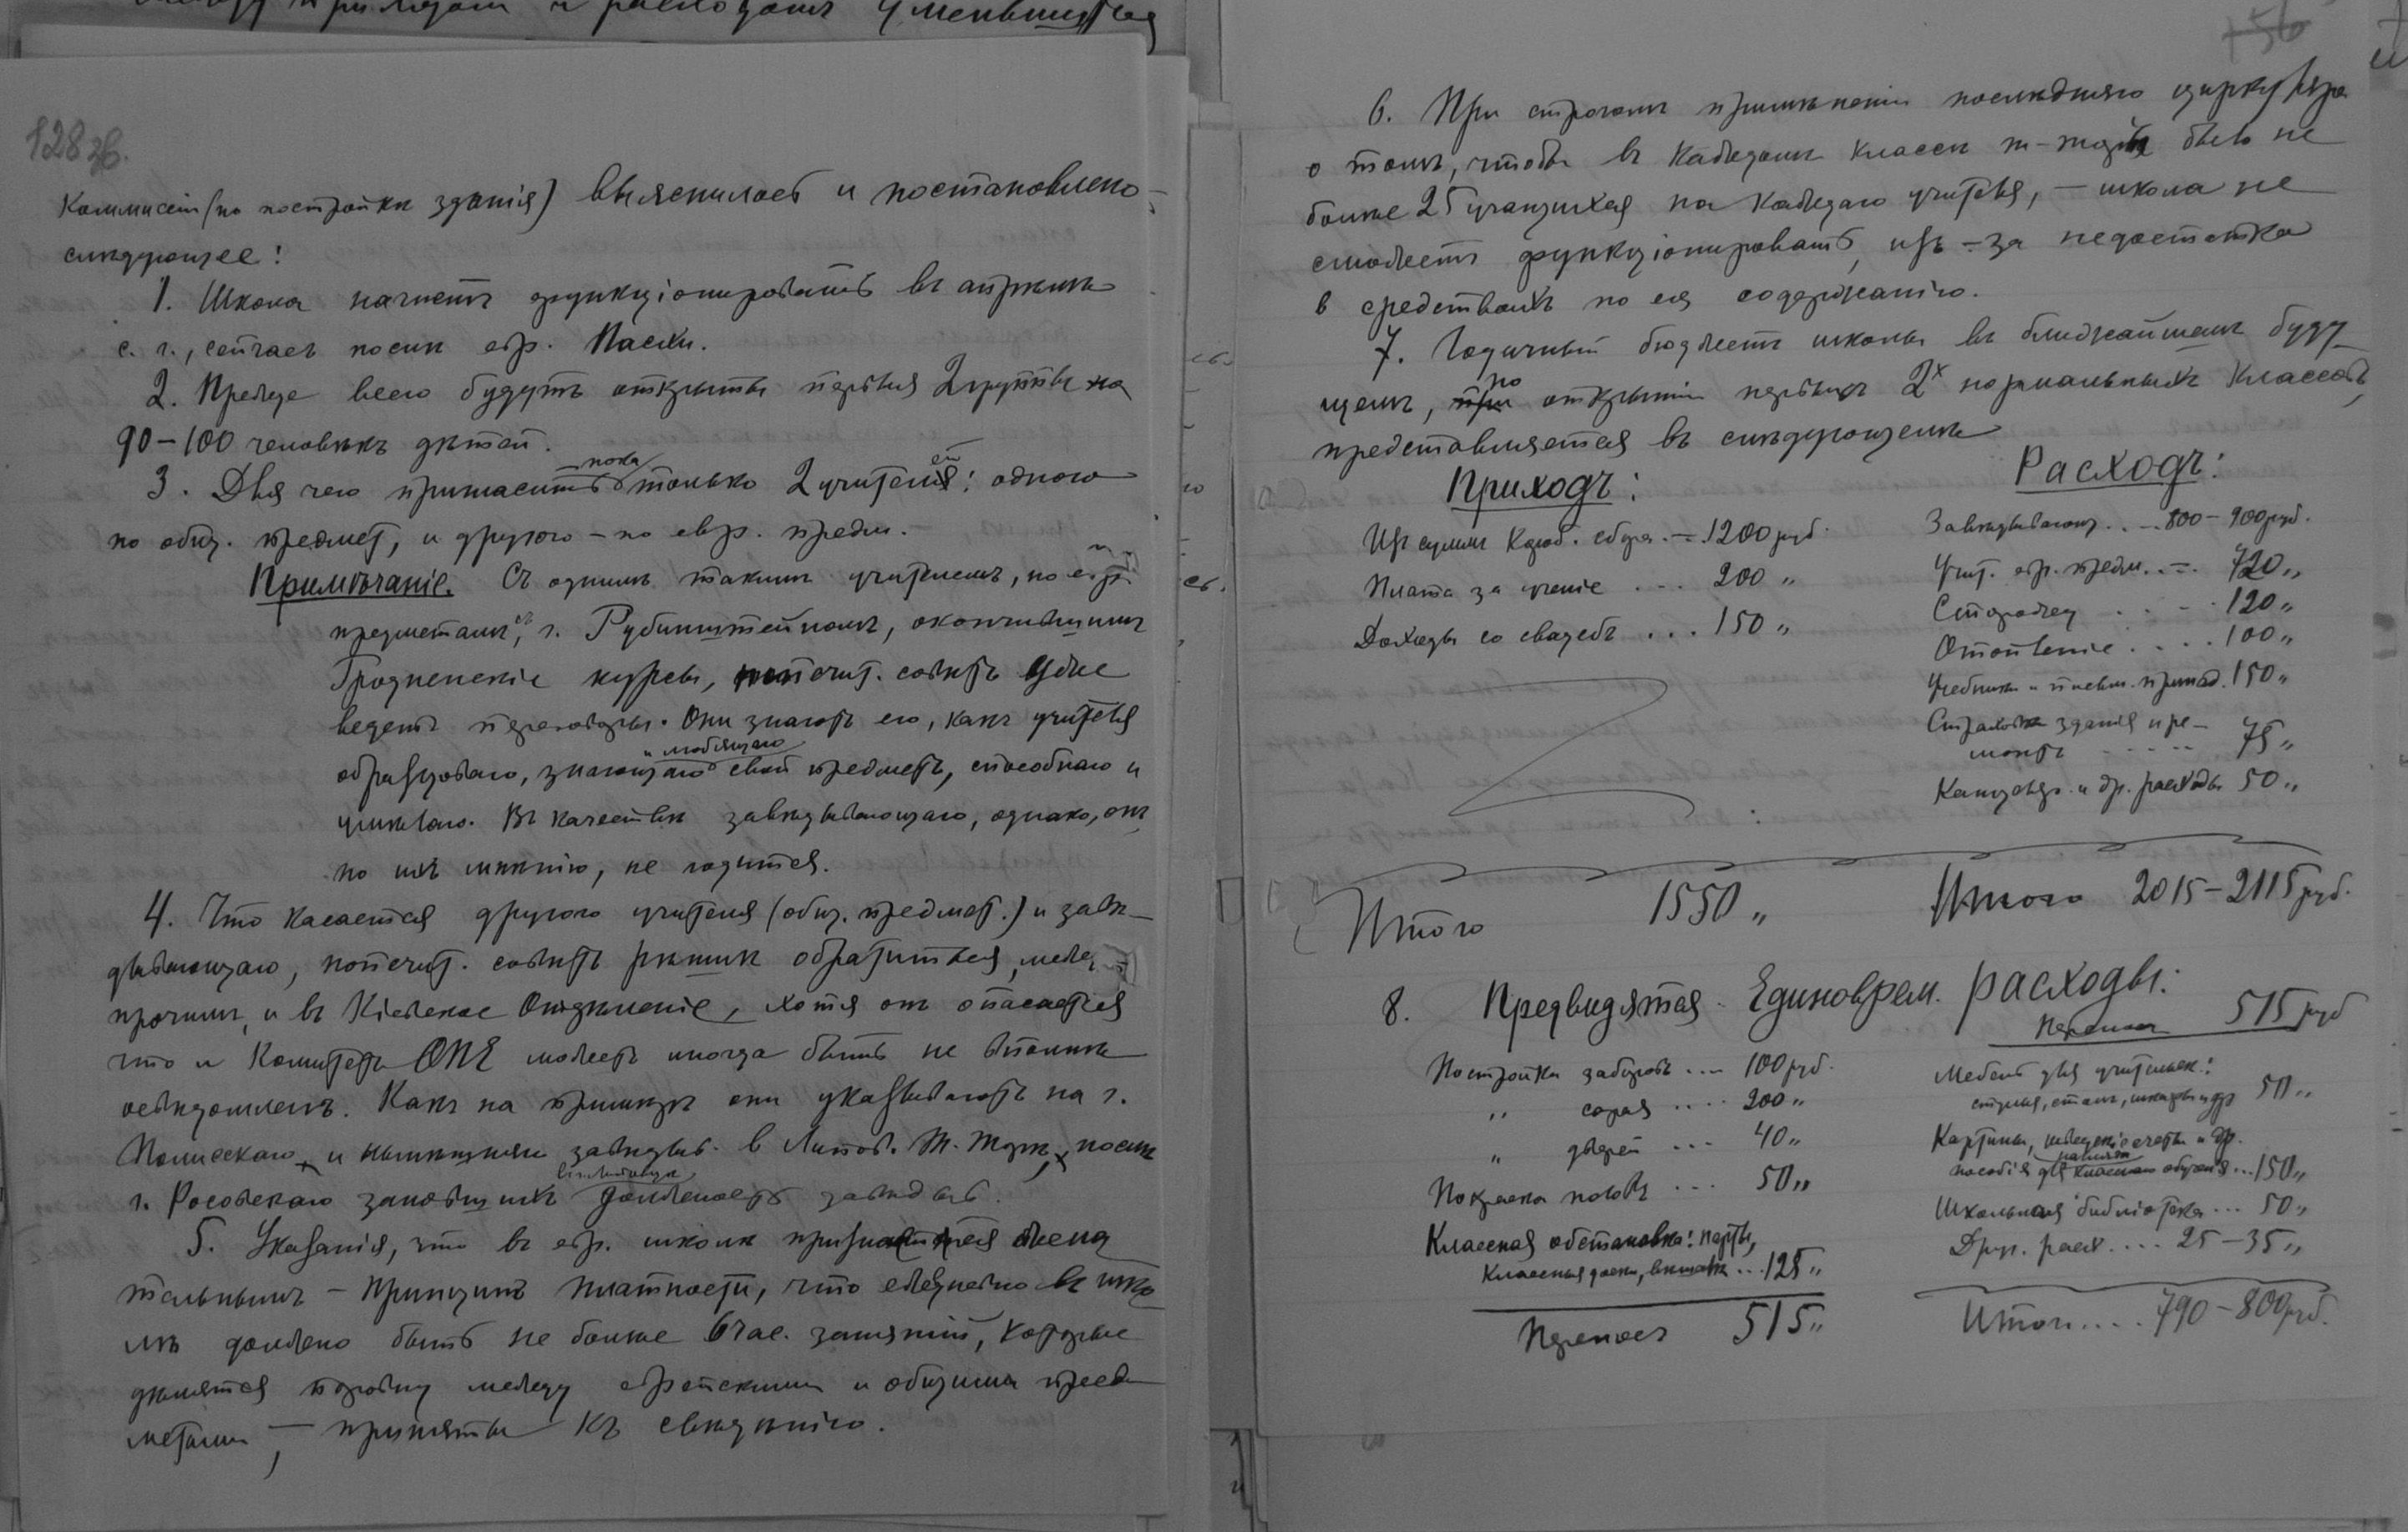 128 об.
Коммиссіи (по постройкѣ зданія) выяснилось и постановлено
слѣдующее:
1. Школа начнетъ функціонировать въ апрѣлѣ
с. г., сейчасъ послѣ евр. Пасхи.
2. Прежде всего будутъ открыты первыя 2 группы на
90–100 человѣкъ дѣтей.
3. Для чего пригласить пока только 2 учителей: одного
по общ. предмет, и другого – по евр. предм.
Примѣчаніе. Съ однимъ такимъ учителемъ, по евр.
предметамъ, г. Рубинштейномъ, окончившимъ
Гродненскіе курсы, попечит. совѣтъ уже
ведетъ переговоры. Они знаютъ его, какъ учителя
образцоваго, знающаго и любящаго свой предметъ, способнаго и
умѣлаго. Въ качествѣ завѣдывающаго, однако, онъ
по ихъ мнѣнію, не годится.
4. Что касается другого учителя (общ. предмет.) и завѣ-
дывающаго, попечит. совѣтъ рѣшилъ обратиться, между
прочимъ, и въ Кіевское Отдѣленіе, хотя онъ опасается
что и Комитетъ ОПЕ можетъ иногда быть не вполнѣ
освѣдомленъ. Какъ на примѣръ они указываютъ на г.
и нынѣшняго завѣдыв. в Литов. Т. Торѣ, послѣ
г. должность завѣдыв.
5. Указанія, что въ евр. школѣ
тельнымъ – принципъ платности, что ежедневно въ шко
лѣ должно быть не болѣе 6 час. занятій, которые
дѣлятся поровну между еврейскими и общими пред
метами, – приняты къ свѣдѣнію.
6. При строгомъ примѣненіи послѣдняго циркуляра
о томъ, чтобы въ каждомъ классѣ т-торы было не
болѣе 25 учащихся на каждаго учителя, – школа не
сможетъ функціонировать, изъ-за недостатка
в средствахъ по ея содержанію.
7. Годичный бюджетъ школы въ ближайшемъ буду-
щемъ, по открытіи первыхъ 2х нормальныхъ классовъ,
представляется въ слѣдующемъ
Приходъ:
Изъ суммъ короб. сбора. – 1200 руб.
Плата за ученіе ... 200 "
Доходы со свадебъ ... 150 "
Расходъ:
Завѣдывающ. . – 800 – 900 руб.
Учит. евр. предм. . – . 720 "
Сторожу . . . . 120 "
Отопленіе . . . . 100 "
Учебники и письм. принад. 150 "
Страховка зданія и ре-
монтъ - - - - 75 "
Канцеляр. и др. расходы 50 "
Итого 1550 "
Итого 2015 – 2115 руб.
8. Предвидятся Единоврем. расходы:
Постройка заборовъ .... 100 руб.
" сарая .... 200 "
" дверей ... 40 "
Покраска половъ ... 50 "
Классная обстановка: парты,
классныя доски, вѣшалки ... 125 "
Переносъ 515 "
Переносъ 515 руб
Мебель для учительск.:
стулья, столъ, шкафы и др 50 "
Картины, шведскіе счеты и др.
пособія для нагляднаго обученія ... 150 "
Школьная библіотека ... 50 "
Друг. расх. .... 25 – 35 "
Итого .... 790 – 800 руб.